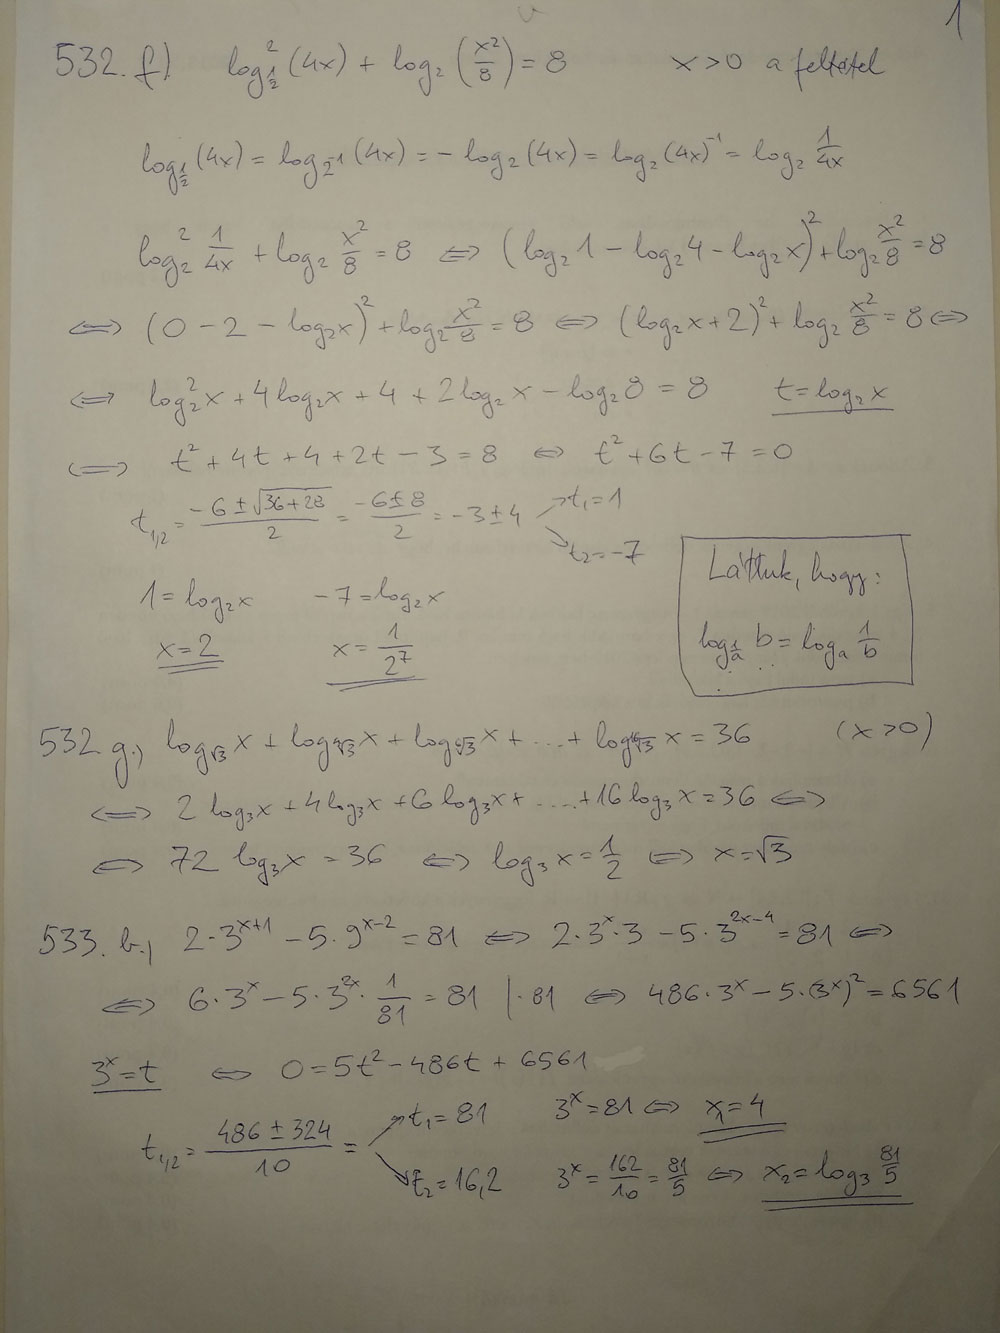 1
532. f.) log²_{1/2} (4x) + log₂ (x²/8) = 8 x>0 a feltétel
log_{1/2} (4x) = log_{2⁻¹} (4x) = - log₂ (4x) = log₂ (4x)⁻¹ = log₂ 1/4x
log₂² 1/4x + log₂ x²/8 = 8 ⇔ (log₂1 - log₂4 - log₂x)² + log₂ x²/8 = 8
⇔ (0 - 2 - log₂x)² + log₂ x²/8 = 8 ⇔ (log₂x + 2)² + log₂ x²/8 = 8 ⇔
⇔ log₂²x + 4log₂x + 4 + 2log₂x - log₂8 = 8 t = log₂x
⇔ t² + 4t + 4 + 2t - 3 = 8 ⇔ t² + 6t - 7 = 0
t₁,₂ = (-6 ± √(36+28))/2 = (-6 ± 8)/2 = -3 ± 4 t₁ = 1
t₂ = -7
Láttuk, hogy:
log_{1/a} b = log_a 1/b
1 = log₂x -7 = log₂x
x = 2 x = 1/2⁷
532 g.) log_{√3} x + log_{⁴√3} x + log_{⁶√3} x + .... + log_{¹⁶√3} x = 36 (x>0)
⇔ 2 log₃x + 4 log₃x + 6 log₃x + .... + 16 log₃x = 36 ⇔
⇔ 72 log₃x = 36 ⇔ log₃x = 1/2 ⇔ x = √3
533. b.) 2·3^{x+1} - 5·9^{x-2} = 81 ⇔ 2·3^x·3 - 5·3^{2x-4} = 81 ⇔
⇔ 6·3^x - 5·3^{2x}·1/81 = 81 |·81 ⇔ 486·3^x - 5·(3^x)² = 6561
3^x = t ⇔ 0 = 5t² - 486t + 6561
t₁,₂ = (486 ± 324)/10 = t₁ = 81 3^x = 81 ⇔ x₁ = 4
t₂ = 16,2 3^x = 162/10 = 81/5 ⇔ x₂ = log₃ 81/5